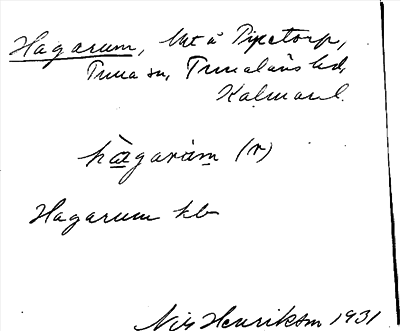 Hagarum, lht å Pipetorp,
Tuna sn, Tunaläns hd,
Kalmar l.
hàgaràm (r)
Hagarum kb
Nils Henrikson 1931